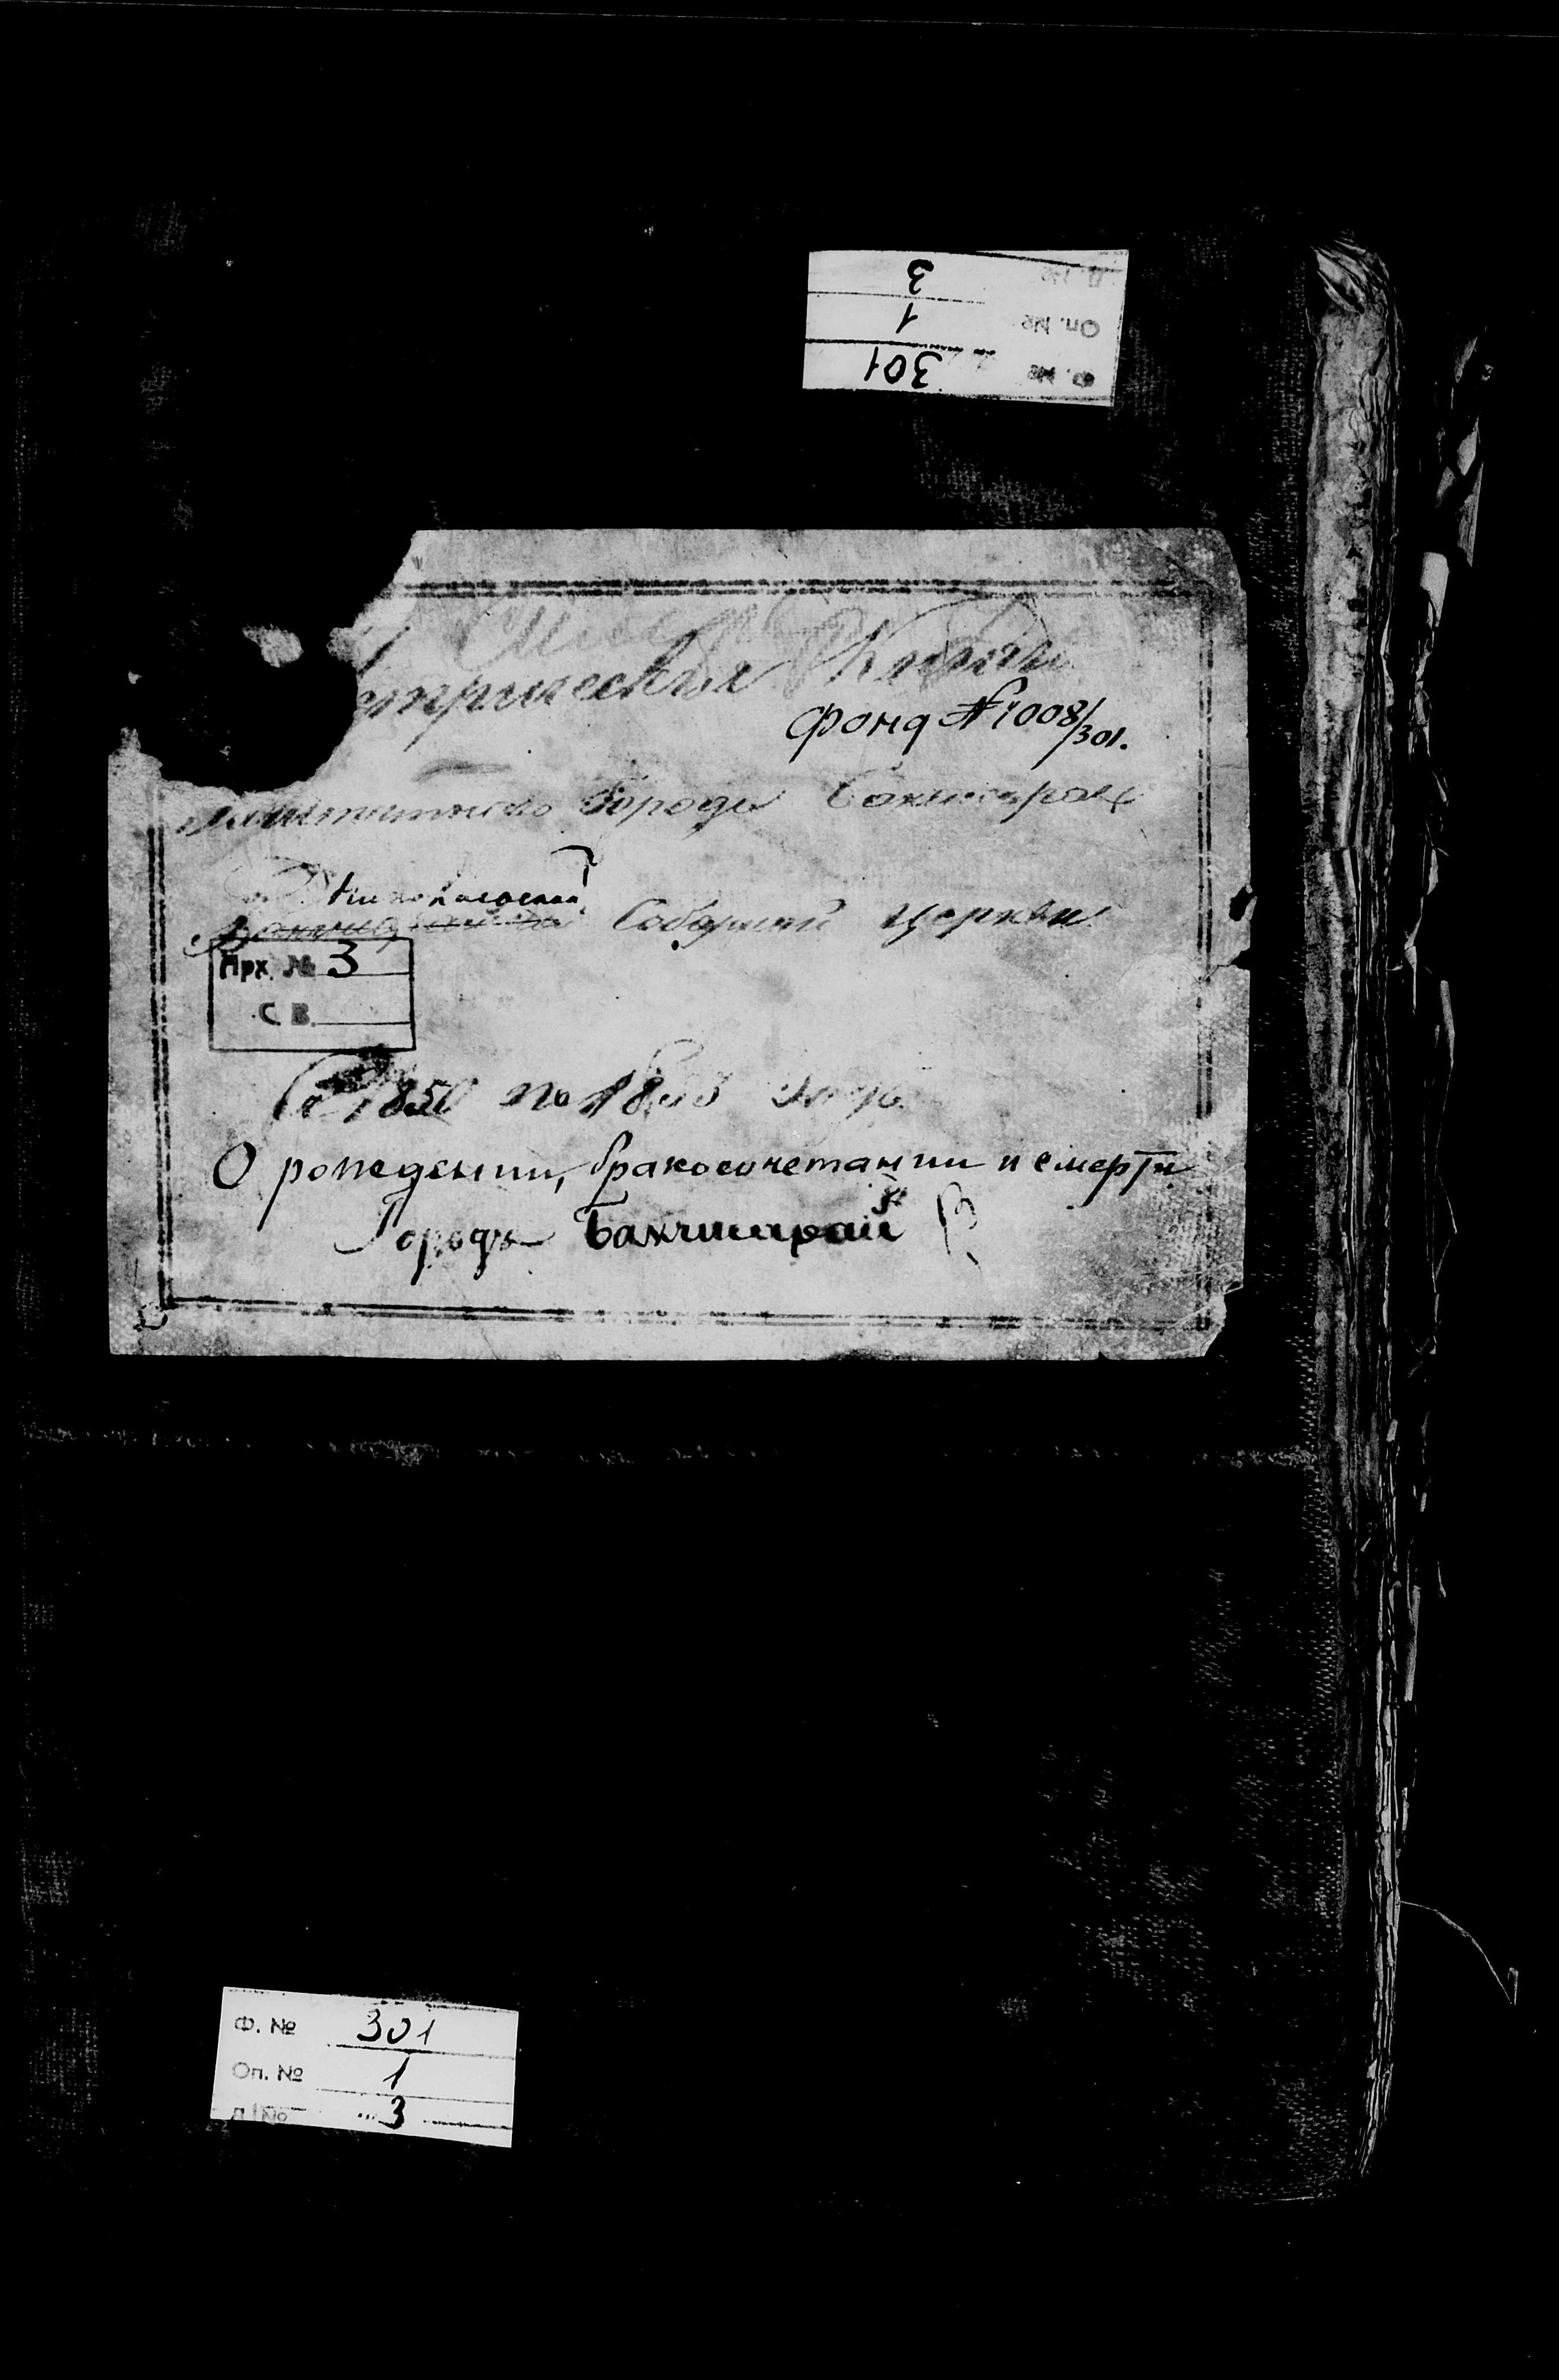 Д. № 3
Оп. № 1
Ф. № 301
етрическая Книга
Фонд № 1008/301.
города Бахчисарая
Николаевской
Соборной церкви
Арх. № 3
С В.
1850 по
О рождении, бракосочетании и смерти
Города Бахчисарай
Ф. № 301
Оп. № 1
Д. № 3